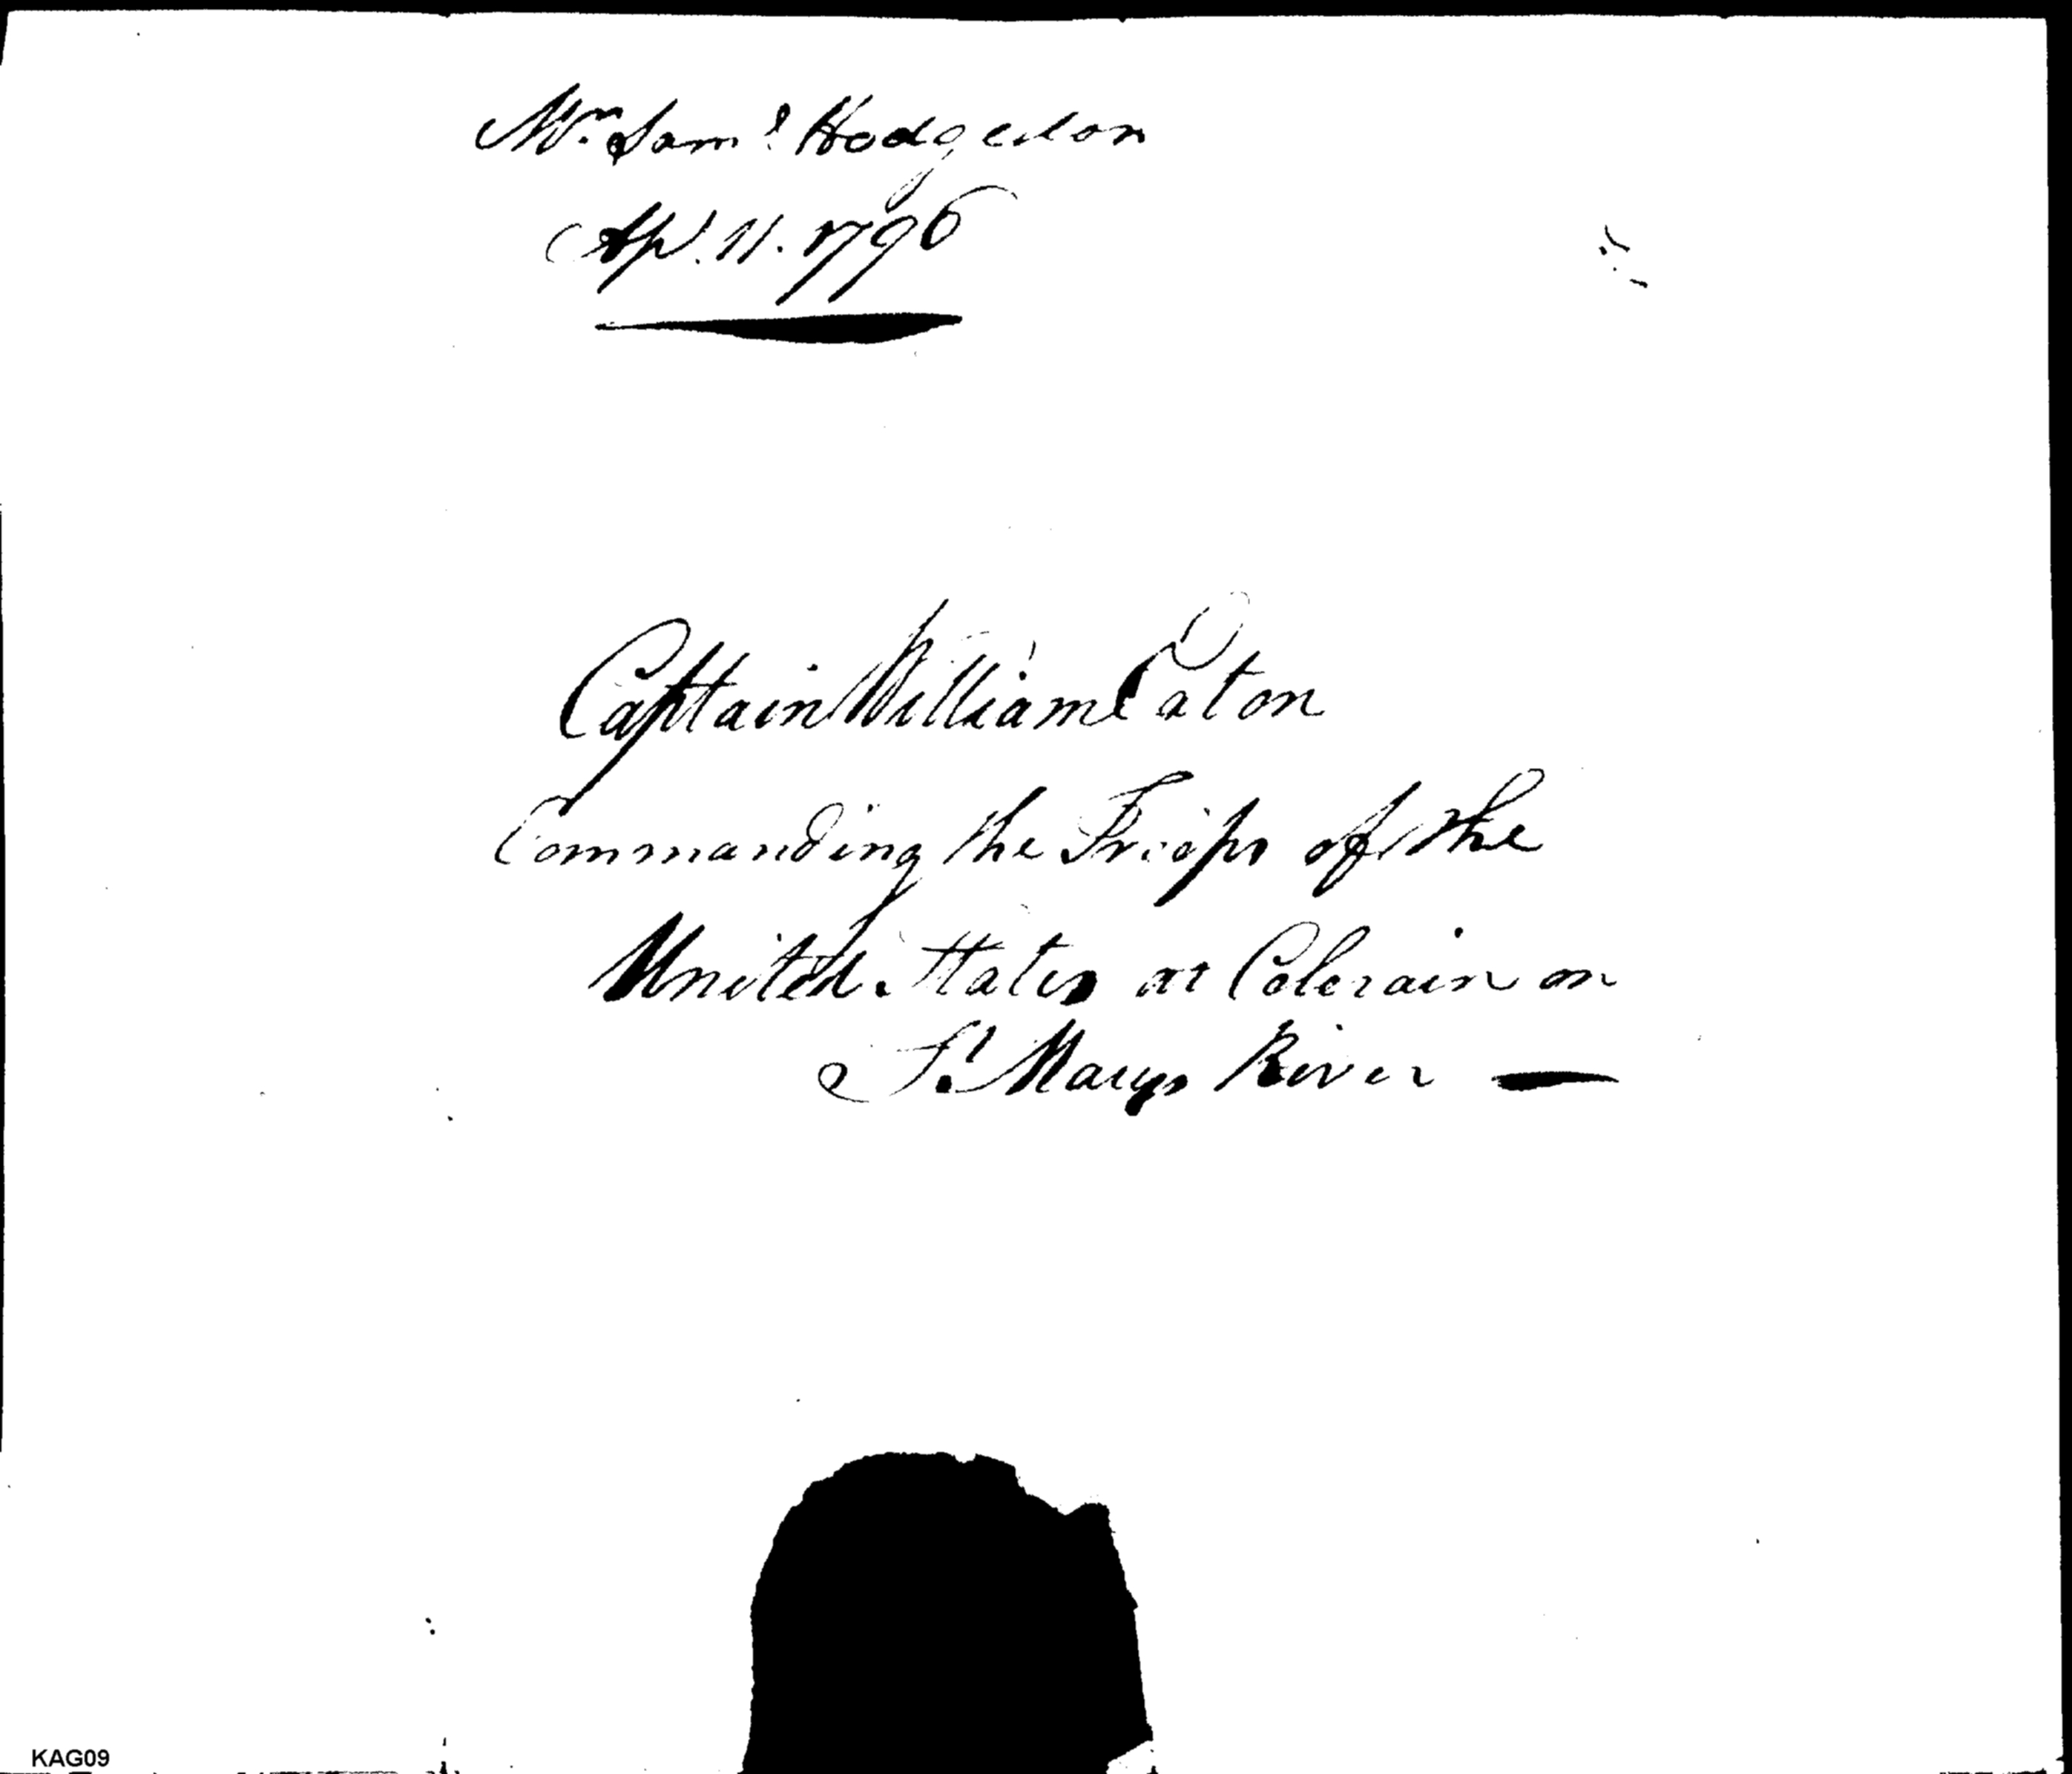 Mr. Saml. Hodgedon
Apl. 11. 1796
Captain William Eaton
Commanding the Troops of the
United States at Colerain on
St. Marys River —
KAG09